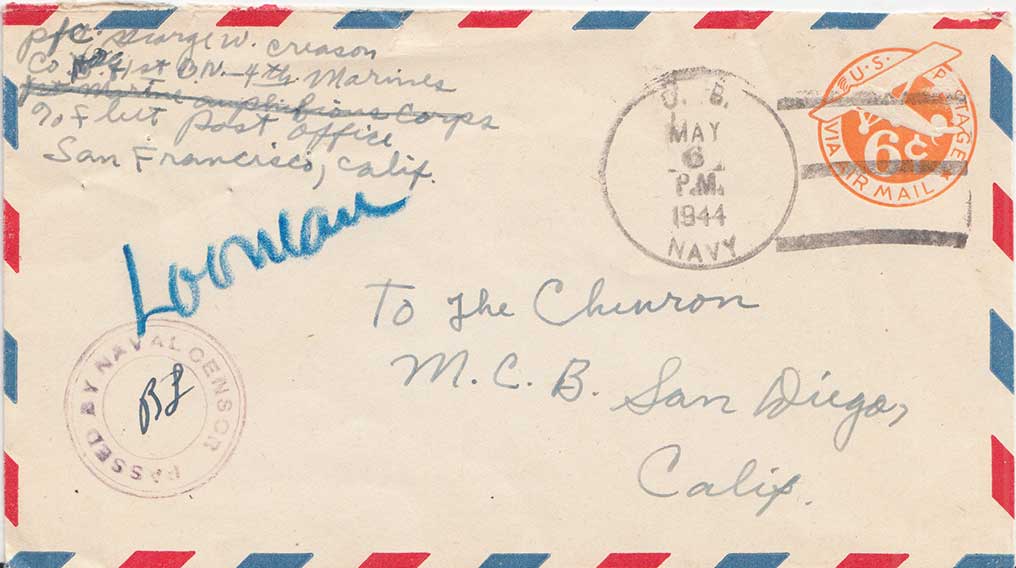 Pfc. George W. Creason
Co. B. 1st BN.-4th Marines
1st Marine Amphibious Corps
% Fleet Post Office
San Francisco, Calif.
U.S. POSTAGE
6¢
VIA AIR MAIL
U. S.
MAY
6
P.M.
1944
NAVY
Looman
To The Chevron
M.C.B. San Diego,
Calif.
PASSED BY NAVAL CENSOR